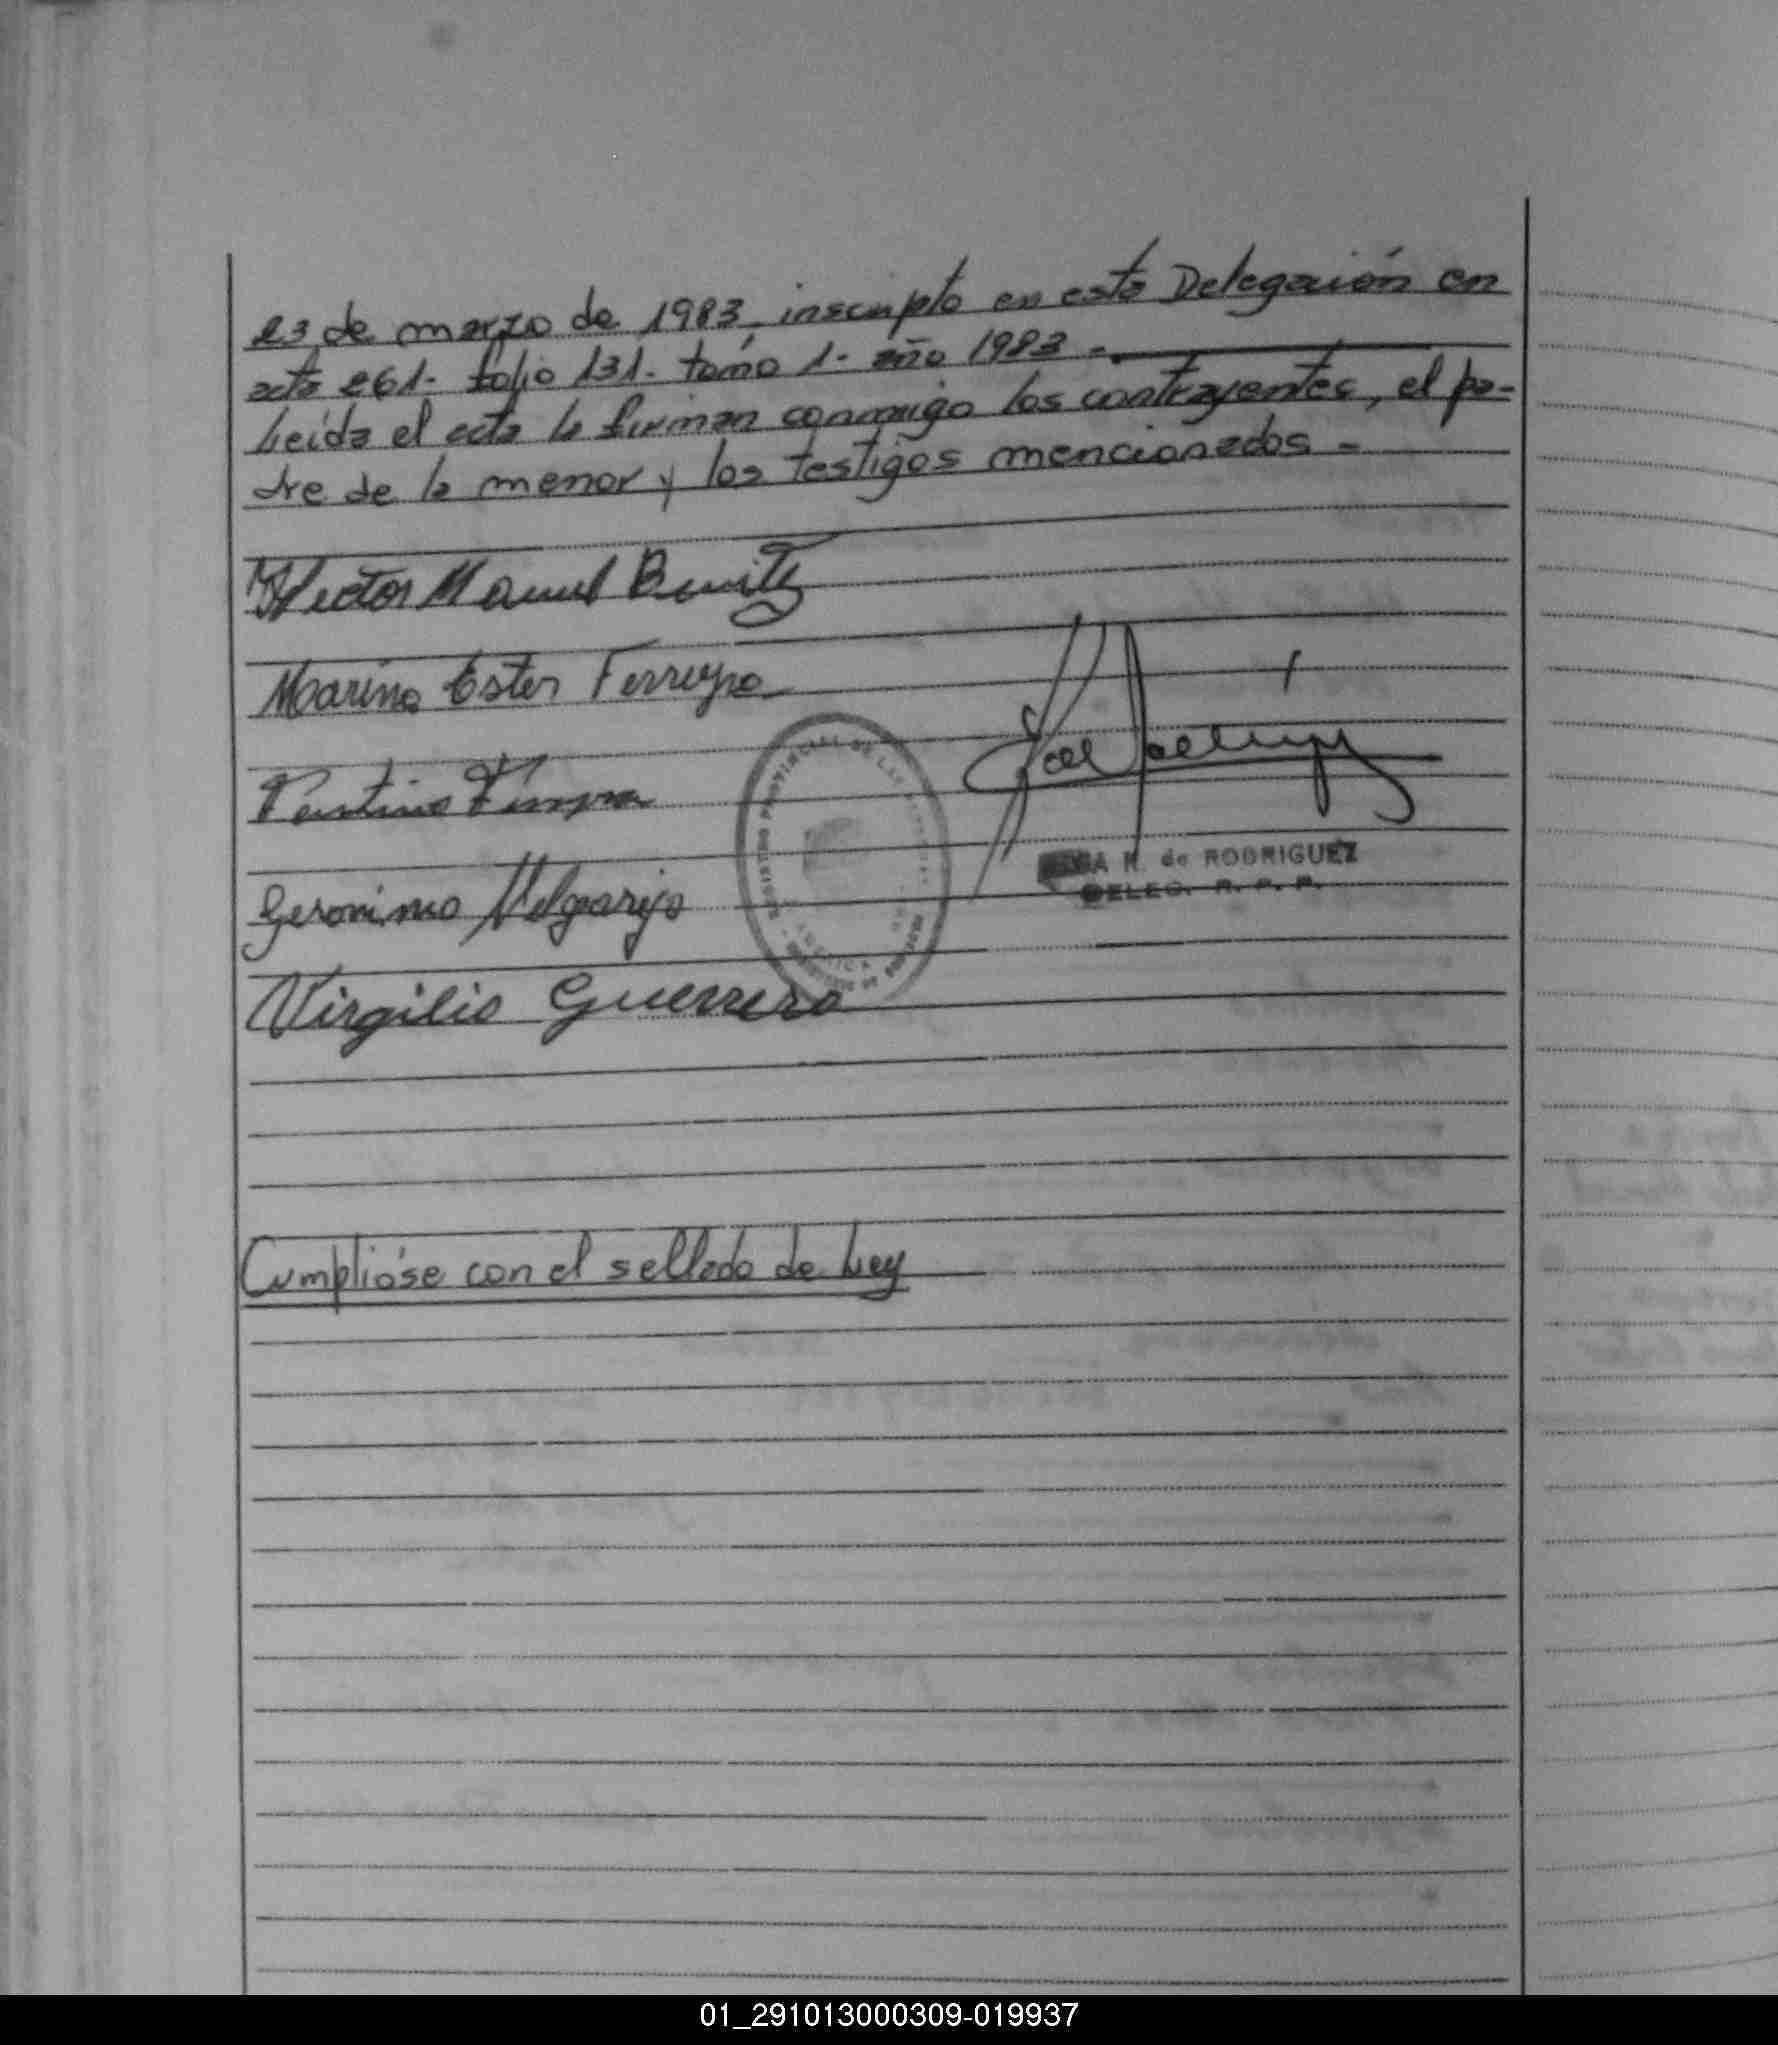 23 de marzo de 1983, inscripto en esta Delegación en
acta 261. folio 131. tomo 1. año 1983 -
Leída el acta la firman conmigo los contrayentes, el pa-
dre de la menor y los testigos mencionados -
Hector Manuel Benitz
Marina Ester Ferreyra
Geronimo Melgarejo
Virgilio Guerrero
REGISTRO PROVINCIAL DE LAS PERSONAS
R. de RODRIGUEZ
DELEG. R. P. P.
Cumplióse con el sellado de Ley
01_291013000309-019937